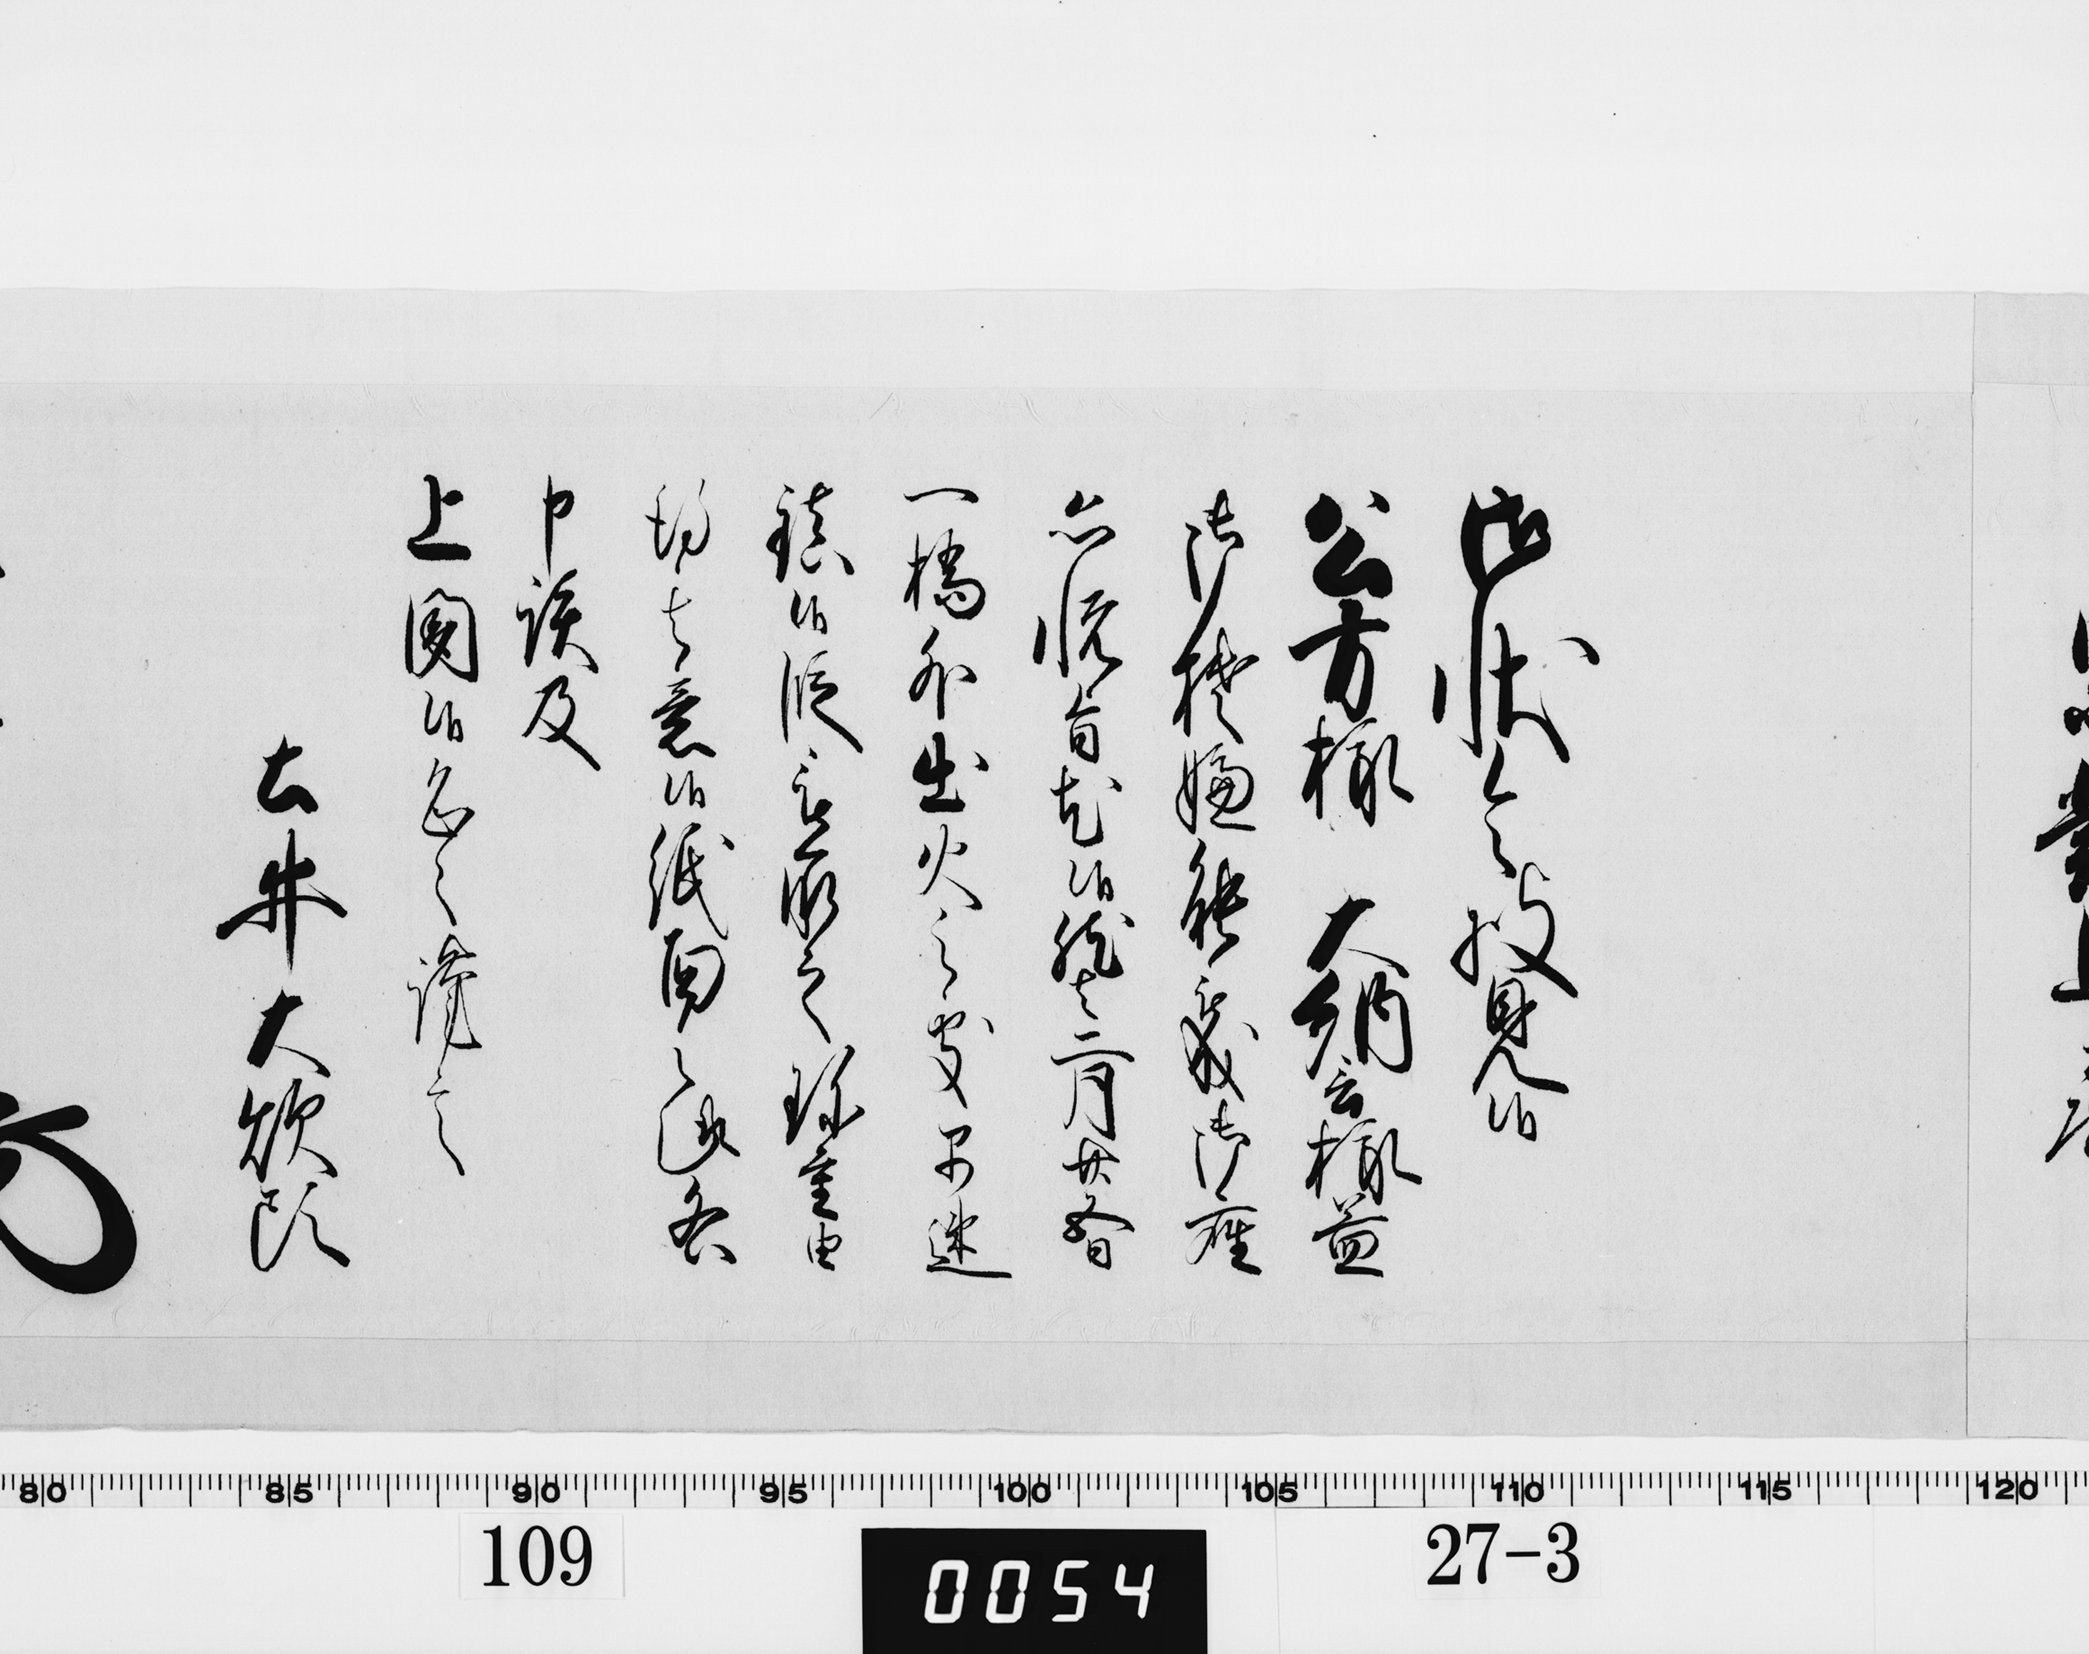 御状令披見候
公方様 大納言様益
御機嫌能被成御座
恐悦旨尤候然者二月廿五日
一橋外出火之処早速
鎮候段被承之珍重由
得其意候紙面之趣各
申談及
上聞候恐々謹言
土井大炊頭
80 85 90 95 100 105 110 115 120
109
0054
27-3